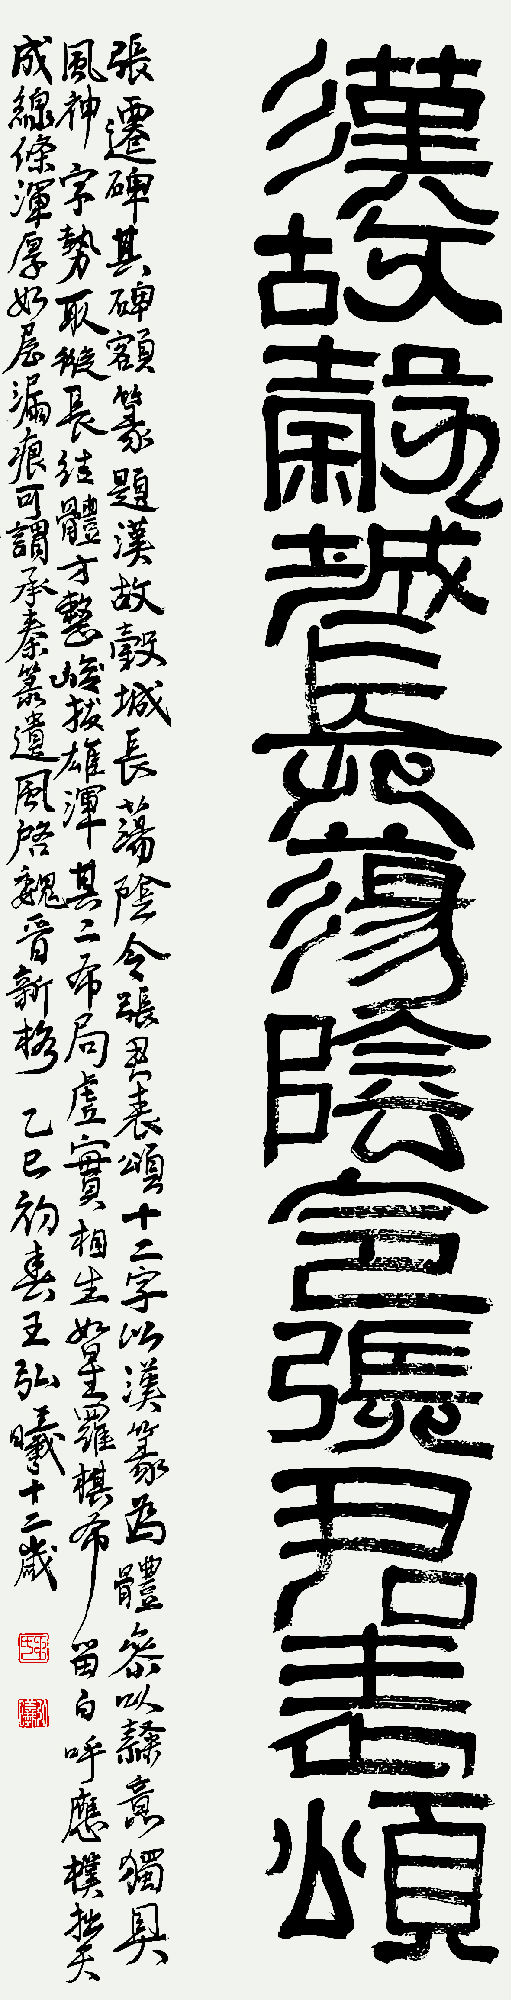 漢故穀城長蕩陰令張君表頌
張遷碑其碑額篆題漢故穀城長蕩陰令張君表頌十二字以漢篆為體參以隸意獨具
風神字勢取縱長結體方整峻拔雄渾其二布局虛實相生如星羅棋布留白呼應樸拙天
成線條渾厚如屋漏痕可謂承秦篆遺風啓魏晉新格 乙巳初春王弘曦十二歲